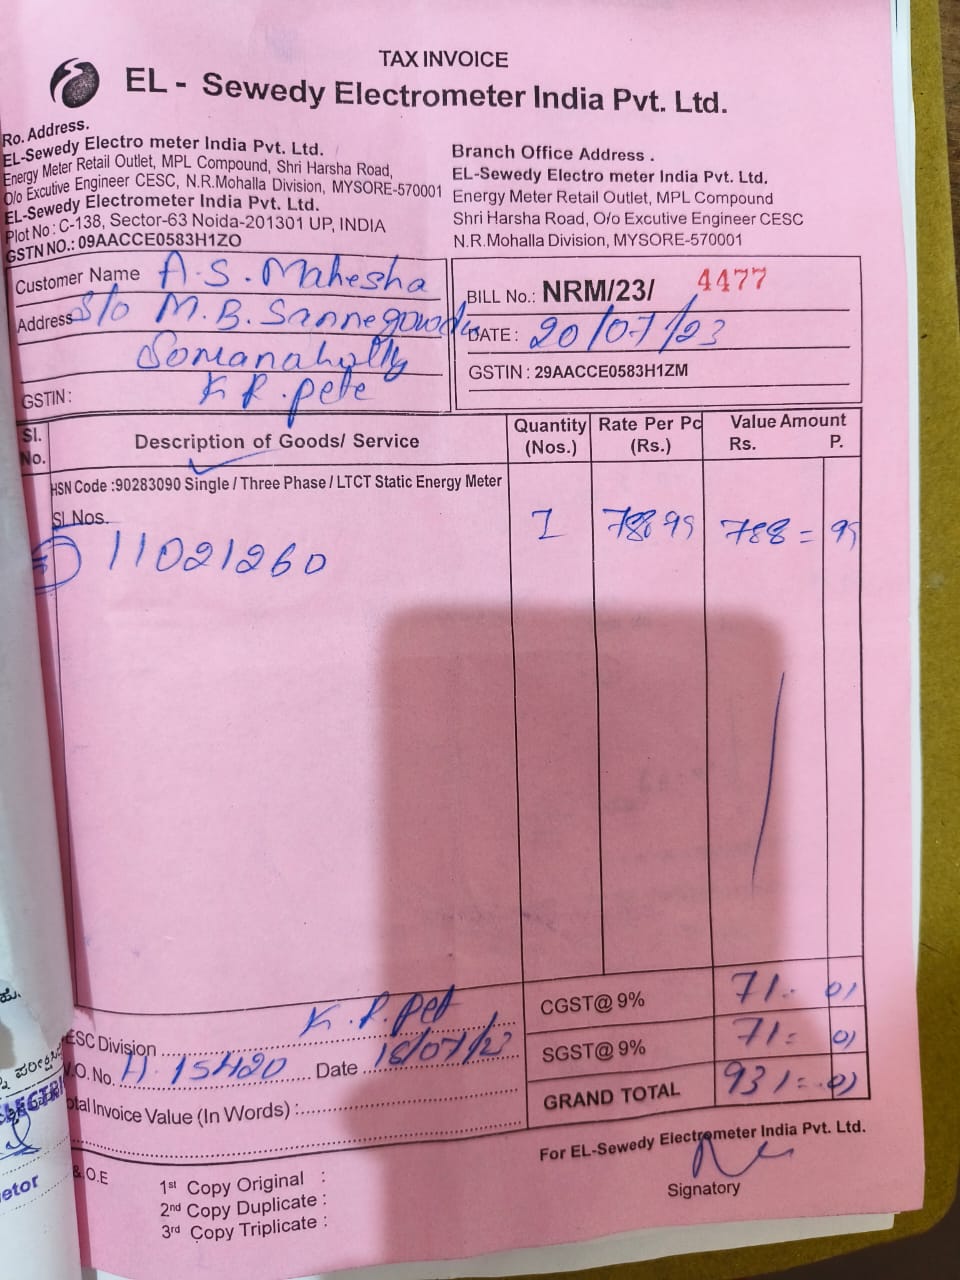 TAX INVOICE
EL - Sewedy Electrometer India Pvt. Ltd.
Ro. Address.
EL-Sewedy Electro meter India Pvt. Ltd.
Energy Meter Retail Outlet, MPL Compound, Shri Harsha Road,
O/o Excutive Engineer CESC, N.R.Mohalla Division, MYSORE-570001
EL-Sewedy Electrometer India Pvt. Ltd.
Plot No : C-138, Sector-63 Noida-201301 UP, INDIA
GSTN NO.: 09AACCE0583H1ZO
Branch Office Address .
EL-Sewedy Electro meter India Pvt. Ltd.
Energy Meter Retail Outlet, MPL Compound
Shri Harsha Road, O/o Excutive Engineer CESC
N.R.Mohalla Division, MYSORE-570001
Customer Name A.S. Mahesha
Address S/o M.B. Sannegowda
Somanahally
GSTIN : K R. pete
BILL No.: NRM/23/ 4477
DATE : 20/07/23
GSTIN : 29AACCE0583H1ZM
Sl. No. Description of Goods/ Service Quantity (Nos.) Rate Per Pc (Rs.) Value Amount Rs. P.
HSN Code :90283090 Single / Three Phase / LTCT Static Energy Meter
Sl.Nos.
11021260 1 788 99 788 = 99
CGST@ 9% 71 - 01
SGST@ 9% 71 = 01
GRAND TOTAL 931 = 01
ESC Division K.R.Pet
.O. No. H. 15420 Date 18/07/23
otal Invoice Value (In Words) :
For EL-Sewedy Electrometer India Pvt. Ltd.
Signatory
& O.E
1st Copy Original :
2nd Copy Duplicate :
3rd Copy Triplicate :